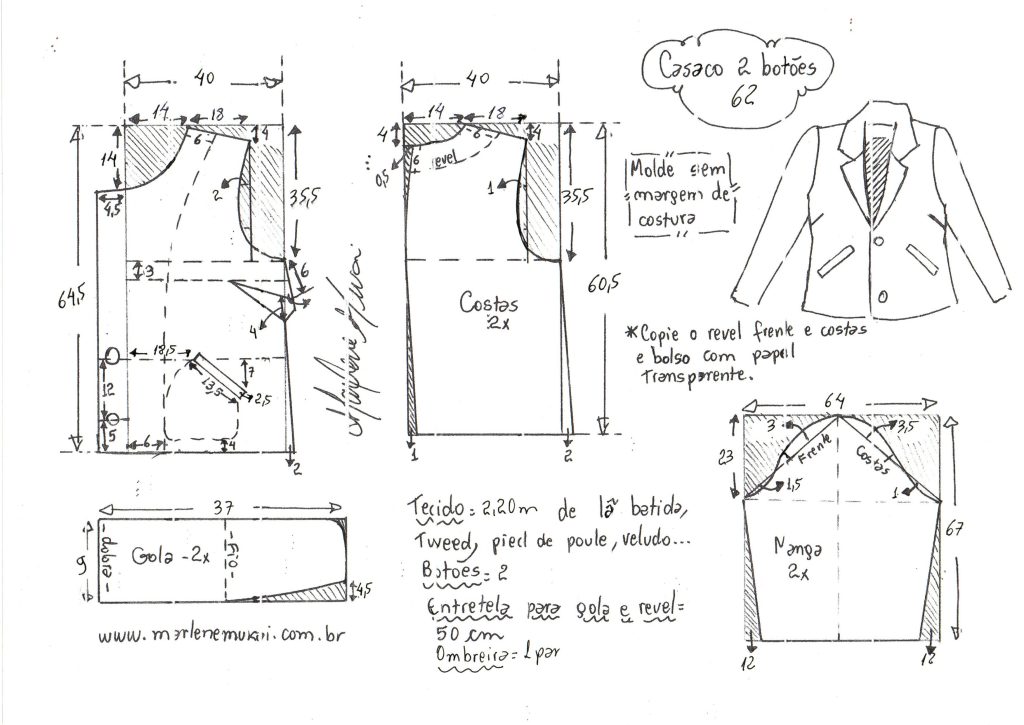 Casaco 2 botões
62
40
14
18
4
6
14
2
35,5
4,5
3
6
4
64,5
18,5
12
13,5
7
2,5
5
6
4
2
40
14
18
4
4
6
6
revel
0,5
1
35,5
60,5
Costas
2x
1
2
Molde sem
margem de
costura
*Copie o revel frente e costas
e bolso com papel
Transparente.
64
3
3,5
23
Frente
Costas
1,5
1
67
Manga
2x
12
12
37
9
dobra
Gola - 2x
fio
4,5
www.marlenemukai.com.br
Tecido = 2,20m de lã batida,
Tweed, pied de poule, veludo...
Botões = 2
Entretela para gola e revel =
50 cm
Ombreira = 1 par